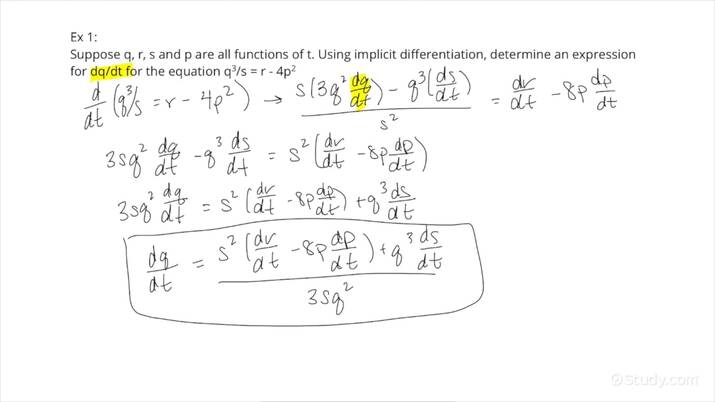 Ex 1:
Suppose q, r, s and p are all functions of t. Using implicit differentiation, determine an expression
for dq/dt for the equation q³/s = r - 4p²
d/dt (q³/s = r - 4p²) → (s(3q² dq/dt) - q³(ds/dt))/s² = dr/dt - 8p dp/dt
3sq² dq/dt - q³ ds/dt = s² (dr/dt - 8p dp/dt)
3sq² dq/dt = s² (dr/dt - 8p dp/dt) + q³ ds/dt
dq/dt = (s² (dr/dt - 8p dp/dt) + q³ ds/dt)/3sq²
©Study.com